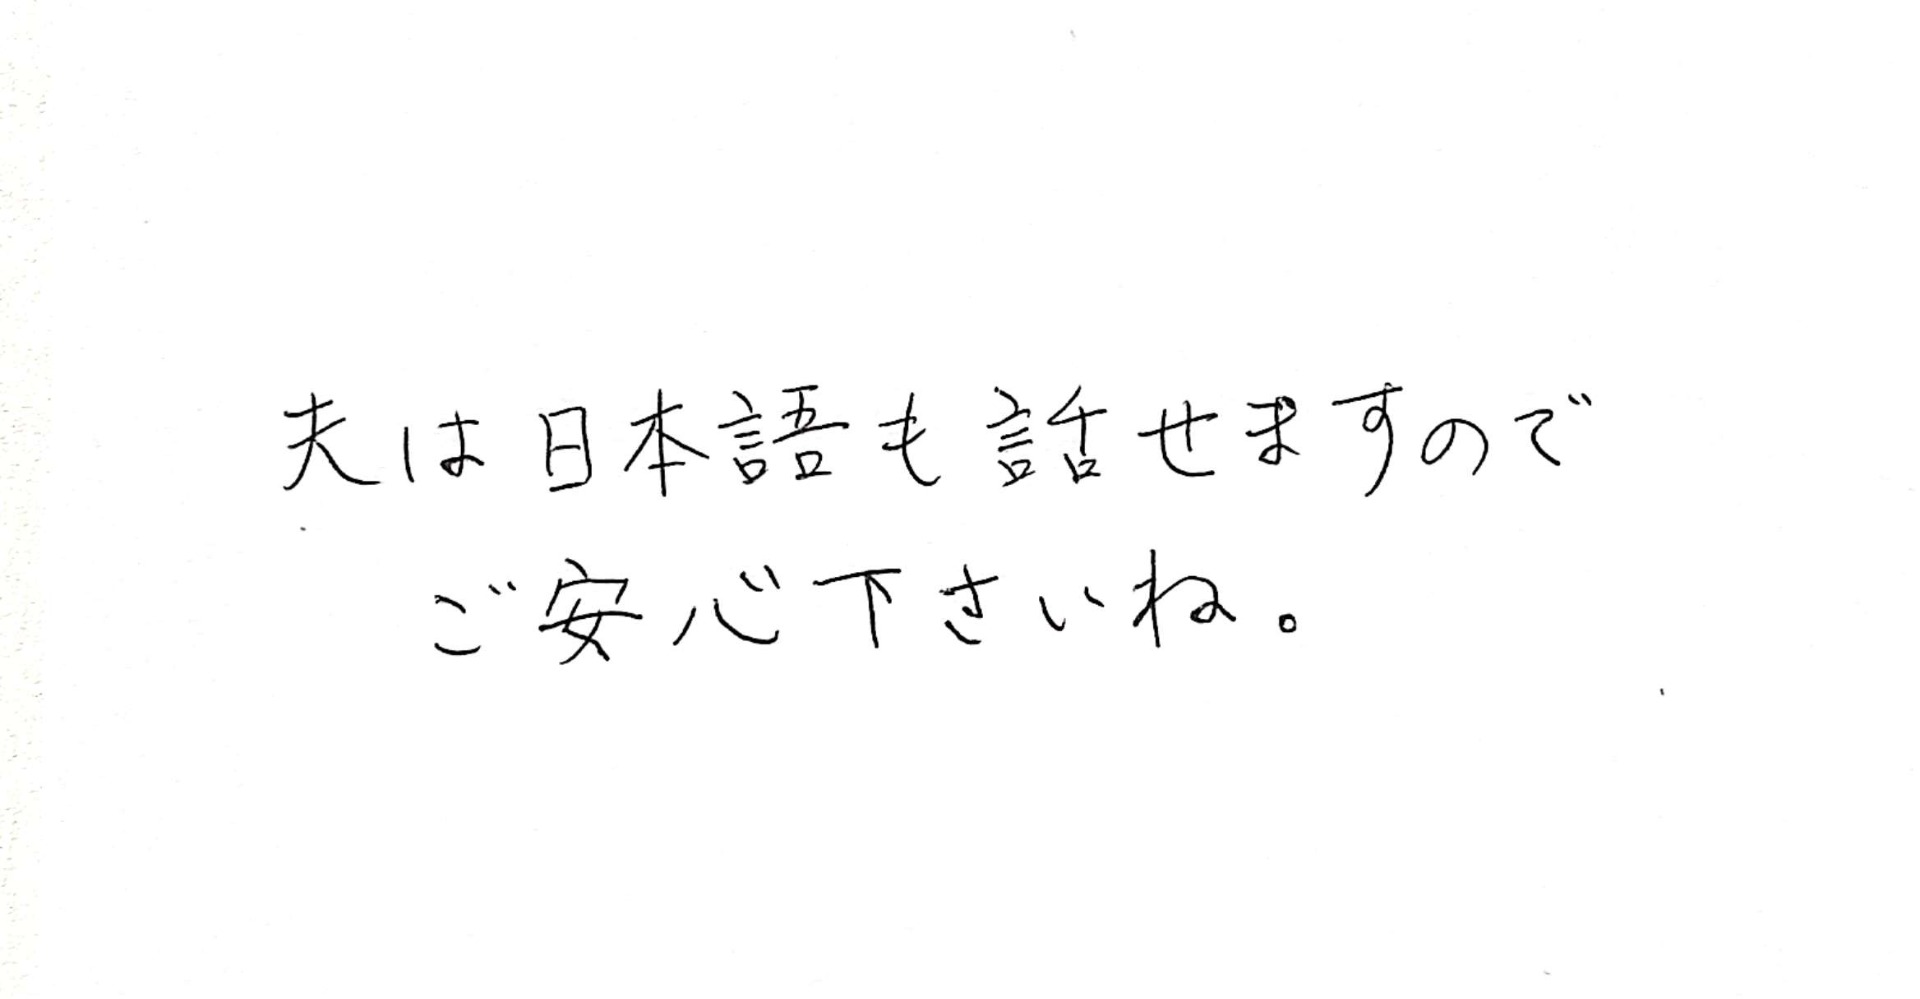 夫は日本語も話せますので
ご安心下さいね。